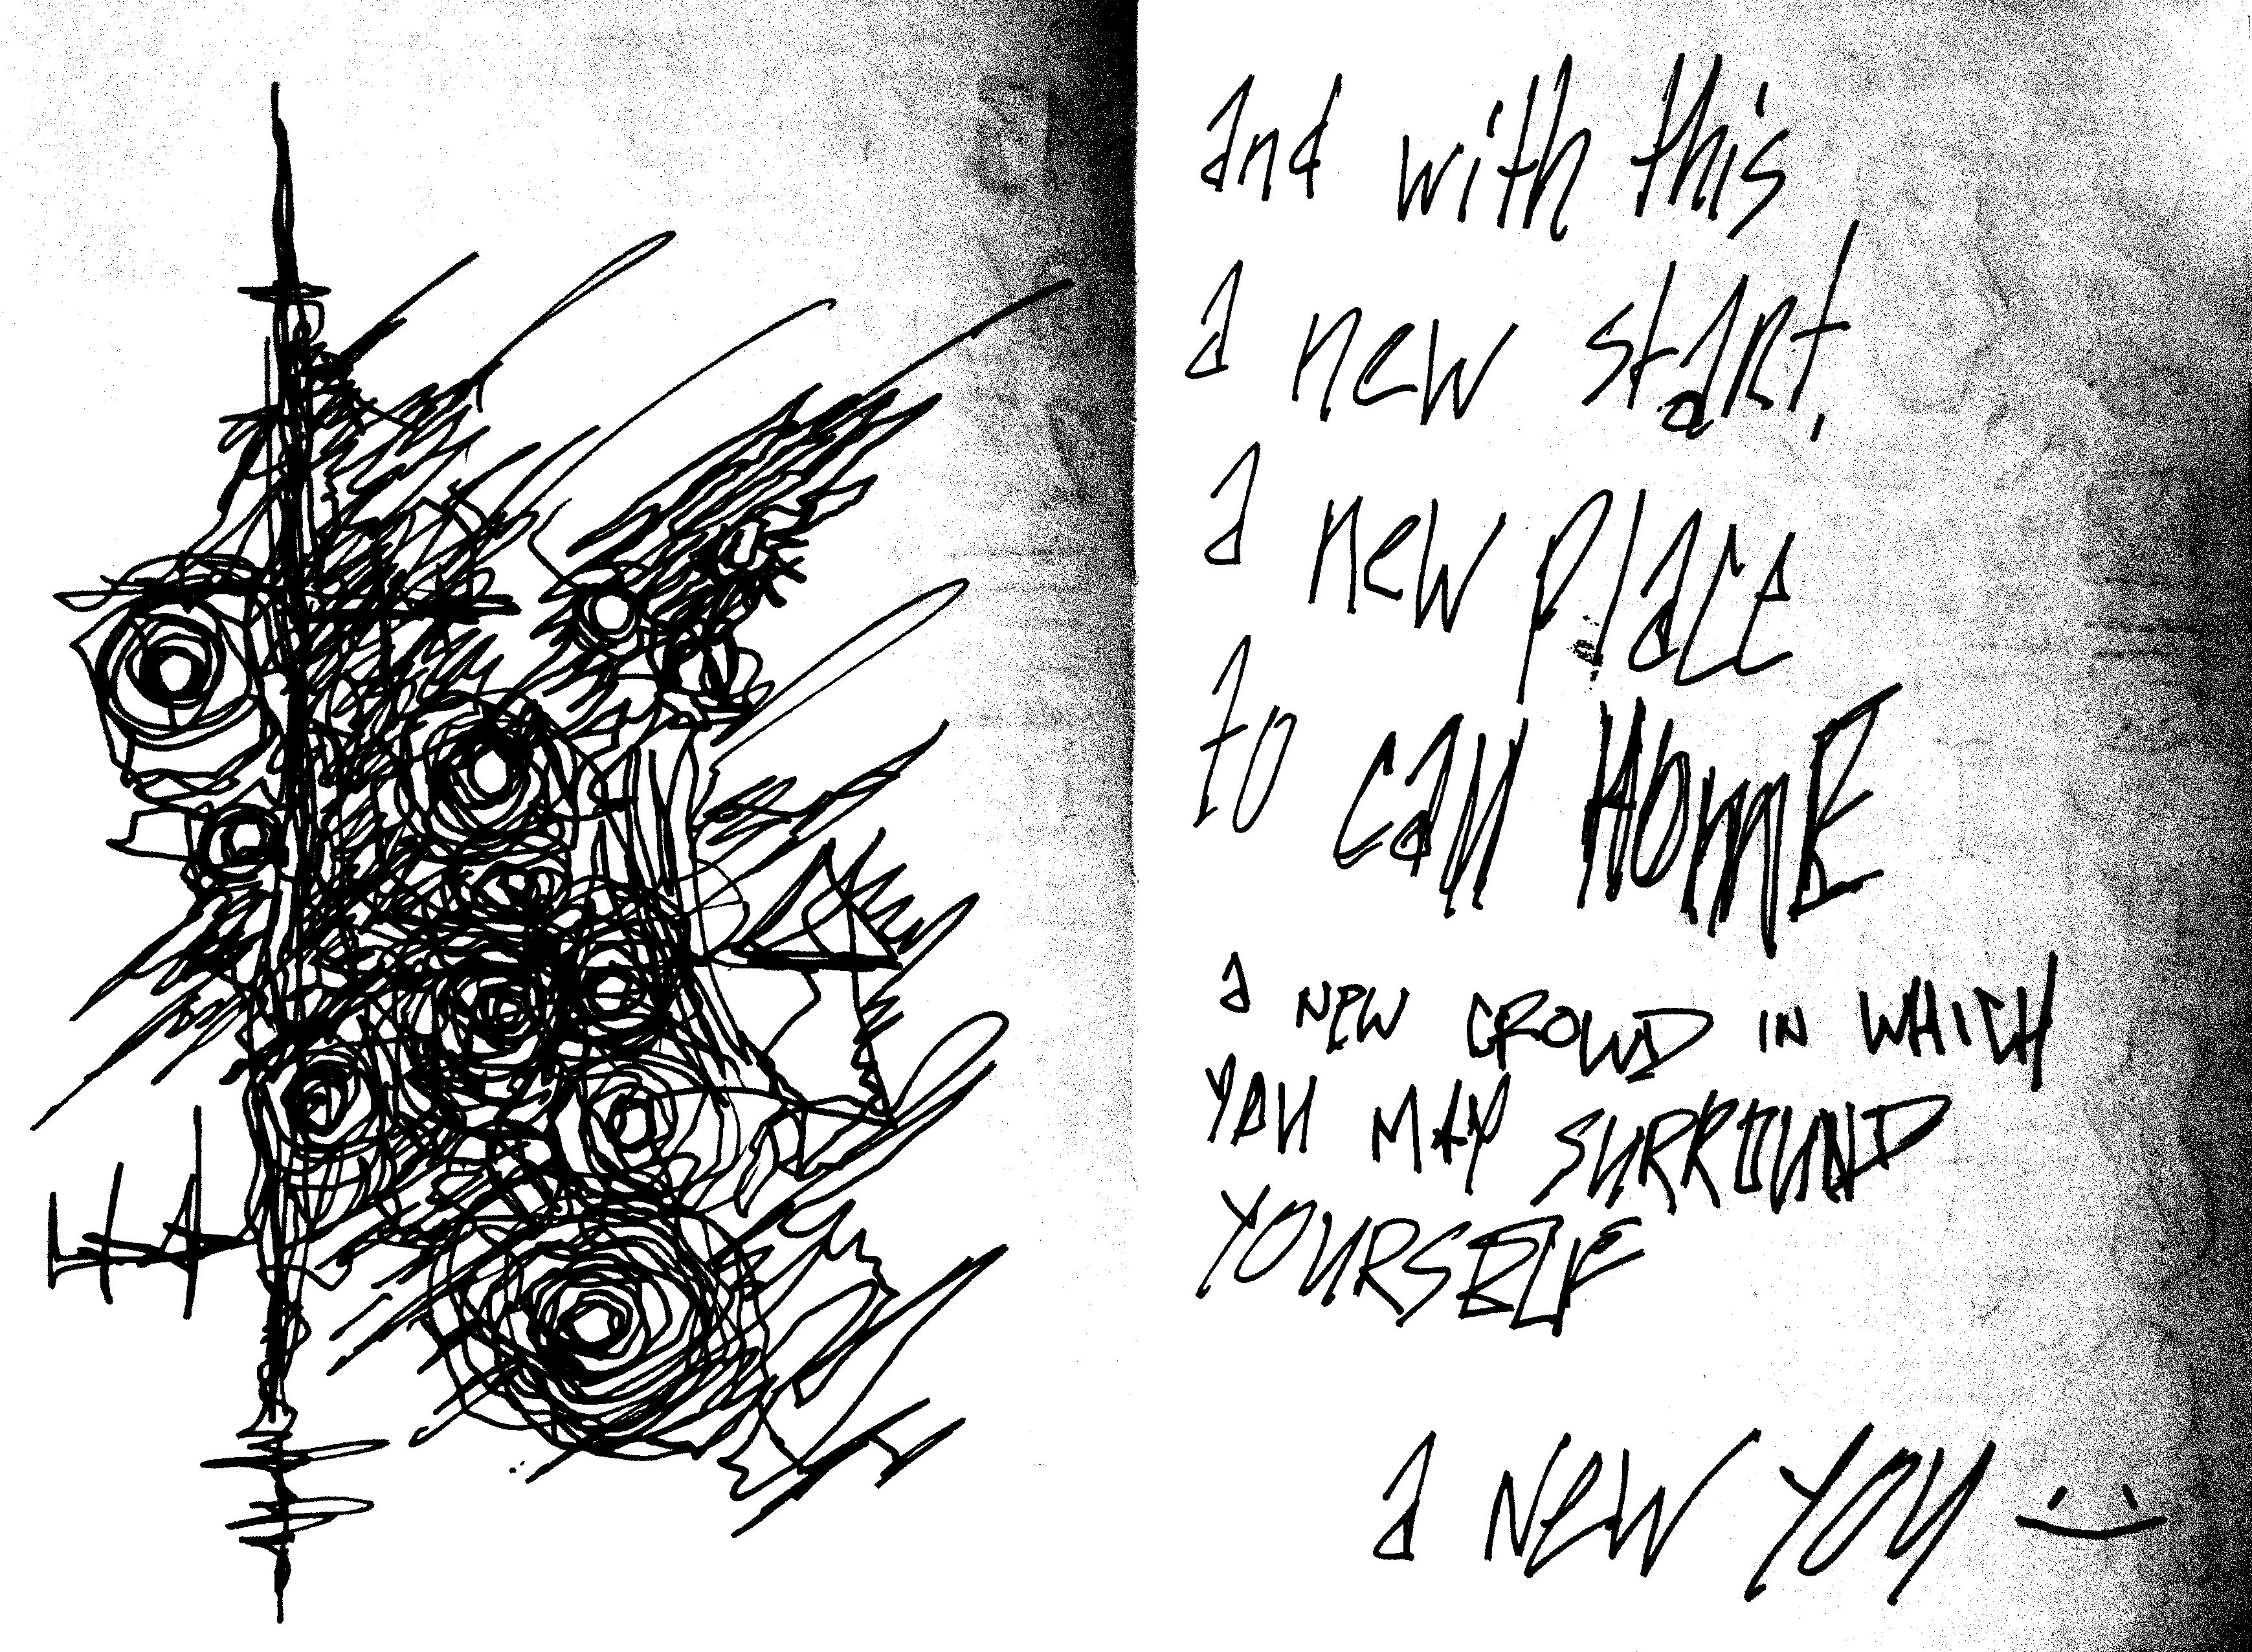 and with this
a new start,
a new place
to call HOME
a NEW CROWD IN WHICH
YOU MAY SURROUND
YOURSELF
a NEW YOU :)